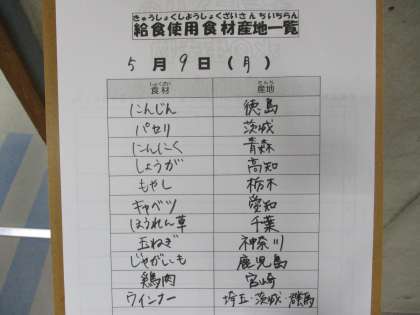 きゅうしょくしようしょくざいさんちいちらん
給食使用食材産地一覧
5月9日(月)
しょくざい さんち
食材 産地
にんじん 徳島
パセリ 茨城
にんにく 青森
しょうが 高知
もやし 栃木
キャベツ 愛知
ほうれん草 千葉
玉ねぎ 神奈川
じゃがいも 鹿児島
鶏肉 宮崎
ウインナー 埼玉・茨城・群馬